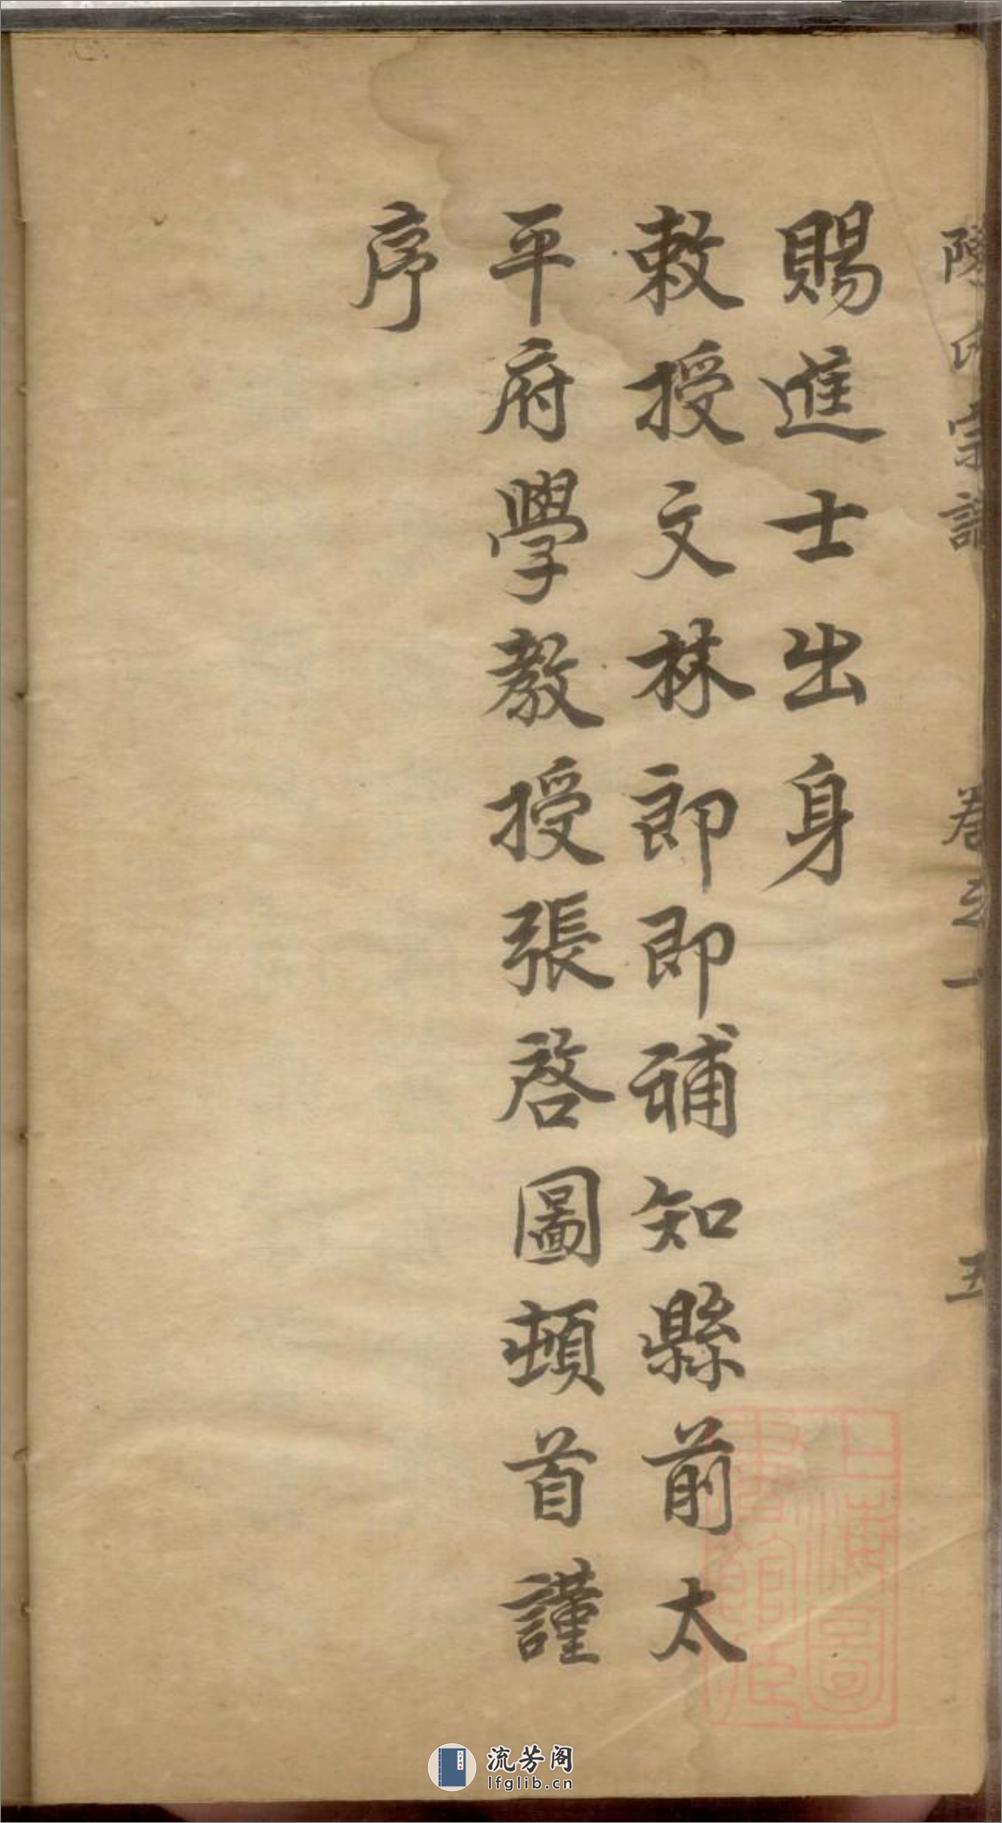 陳氏宗譜 卷之一 五
賜進士出身
敕授文林郎即補知縣前太
平府學教授張啓圖頓首謹
序
上海圖書館藏
流芳阁
lfglib.cn